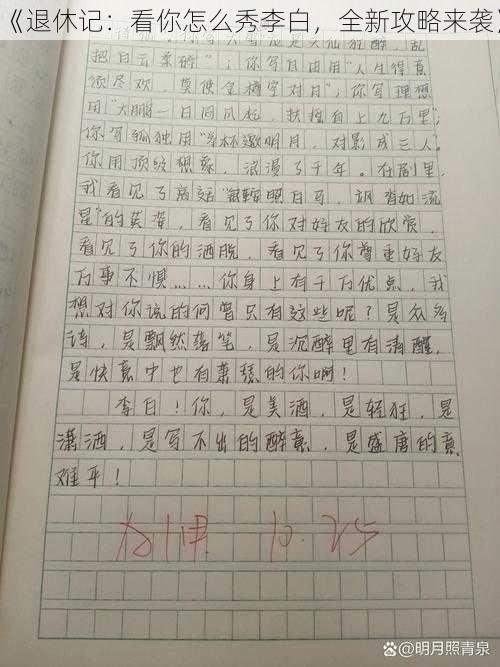 《退休记：看你怎么秀李白，全新攻略来袭》
把白云揉碎"；你写自由用"人生得意
须尽欢，莫使金樽空对月"；你写理想
用"大鹏一日同风起，扶摇直上九万里"；
你写孤独用"举杯邀明月，对影成三人"。
你用顶级想象，浪漫了千年。在剧里，
我看见了高适"银鞍照白马，飒沓如流
星"的英姿，看见了你对好友的欣赏，
看见了你的洒脱，看见了你尊重好友
万事不惧……你身上有千万优点，我
想对你说的何曾只有这些呢？是众多
诗，是飘然落笔，是沉醉里有清醒，
是快意中也有萧瑟的你啊！
李白！你，是美酒，是轻狂，是
潇洒，是写不出的醉意，是盛唐的意
难平！
10.25
@明月照青泉